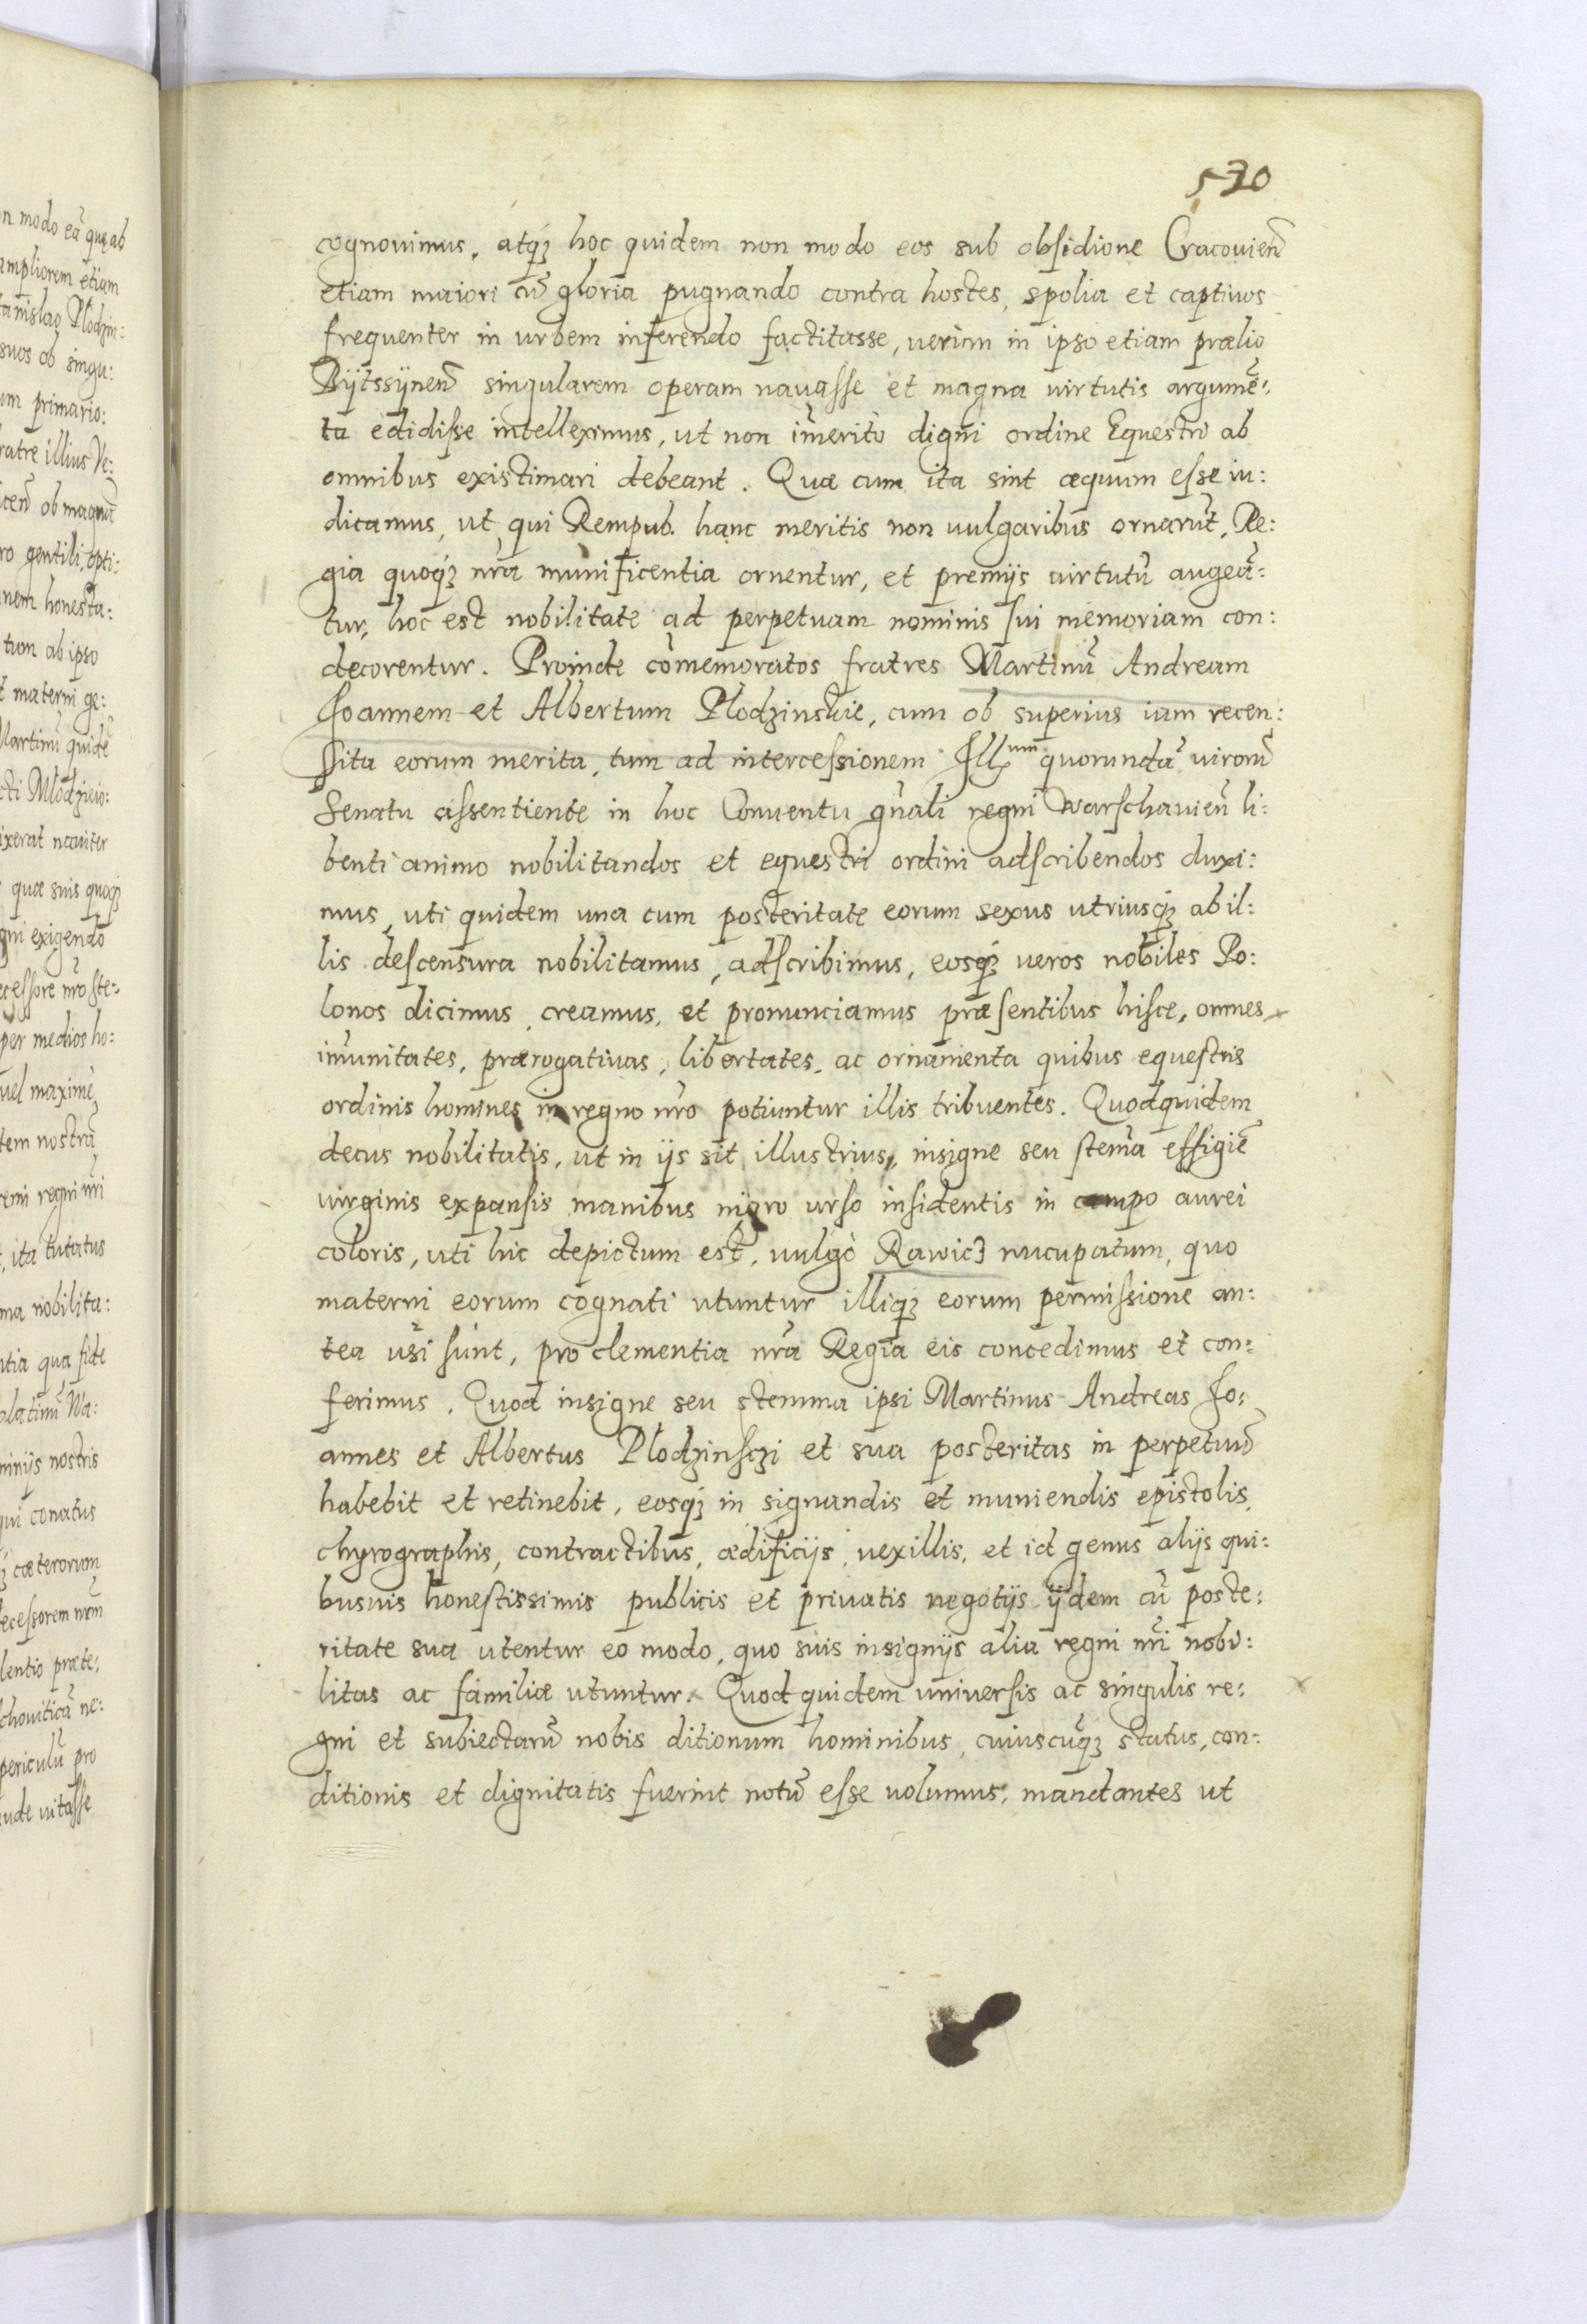 on modo eã quę ab
ampliorem etiam
tanislao Plodzin:
suos ob singu:
um primario:
ratre illius Ve:
ob magnã
ro gentili, opti:
nem honesta:
tum ab ipso
t materni ge:
Martinũ quidẽ
cti Mlodzieio:
ixerat nauiter
quæ suis quoqʒ
gni exigendo
ecessore nr̃o Ste:
per medios ho:
uel maximè
tem nostrã
remi regni nr̃i
, ita tutatus
ma nobilita:
ntia qua fide
latinũ Wa:
minijs nostris
qui conatus
ʒ cæterorum
ecessorem nr̃m
lentio præte:
chouiticã ne:
periculũ pro
ude uitasse
530
cognouimus, atqʒ hoc quidem non modo eos sub obsidione Cracouien̄
etiam maiori cũ gloria pugnando contra hostes, spolia et captiuos
frequenter in vrbem inferendo factitasse, verùm in ipso etiam prælio
Bijtssijnen̄ singularem operam nauasse et magna virtutis argumẽ:
ta edidisse intelleximus, ut non im̃erito digni ordine Equestri ab
omnibus existimari debeant. Quæ cum ita sint æquum esse iu:
dicamus, ut qui Rempub. hanc meritis non uulgaribus ornarũt, Re:
gia quoqʒ nr̃a munificentia ornentur, et premijs virtutũ augeã:
tur, hoc est nobilitate ad perpetuam nominis sui memoriam con:
decorentur. Proinde com̃emoratos fratres Martinũ Andream
Joannem et Albertum Plodzinskie, cum ob superius iam recen:
sita eorum merita, tum ad intercessionem Illᵘᵐ quorundã uirorũ
Senatu assentiente in hoc Conuentu gñali regni Warschauien̄ li:
benti animo nobilitandos et equestri ordini adscribendos duxi:
mus, uti quidem una cum posteritate eorum sexus utriusqʒ ab il:
lis descensura nobilitamus, adscribimus, eosqʒ ueros nobiles Po:
lonos dicimus, creamus, et pronunciamus præsentibus hisce, omnes
im̃unitates, prærogatiuas, libertates, ac ornamenta quibus equestris
ordinis homines in regno nr̃o potiuntur illis tribuentes. Quodquidem
decus nobilitatis, ut in ijs sit illustrius, insigne seu stem̃a effigiẽ
virginis expansis manibus nigro urso insidentis in campo aurei
coloris, uti hic depictum est, uulgò Rawicʒ nucupatum, quo
materni eorum cognati utuntur illiqʒ eorum permissione an:
tea usi sunt, pro clementia nr̃a Regia eis concedimus et con:
ferimus. Quod insigne seu stemma ipsi Martinus Andreas Jo:
annes et Albertus Plodzinsczi et sua posteritas in perpetuũ
habebit et retinebit, eosqʒ in signandis et muniendis epistolis,
chyrographis, contractibus, ædificijs, uexillis, et id genus alijs qui:
busuis honestissimis publicis et priuatis negotijs ijdem cũ poste:
ritate sua utentur eo modo, quo suis insignijs alia regni nr̃i nobi:
litas ac familiæ utuntur. Quod quidem vniuersis ac singulis re:
gni et subiectarũ nobis ditionum hominibus, cuiuscũqʒ status, con:
ditionis et dignitatis fuerint notũ esse uolumus, mandantes ut